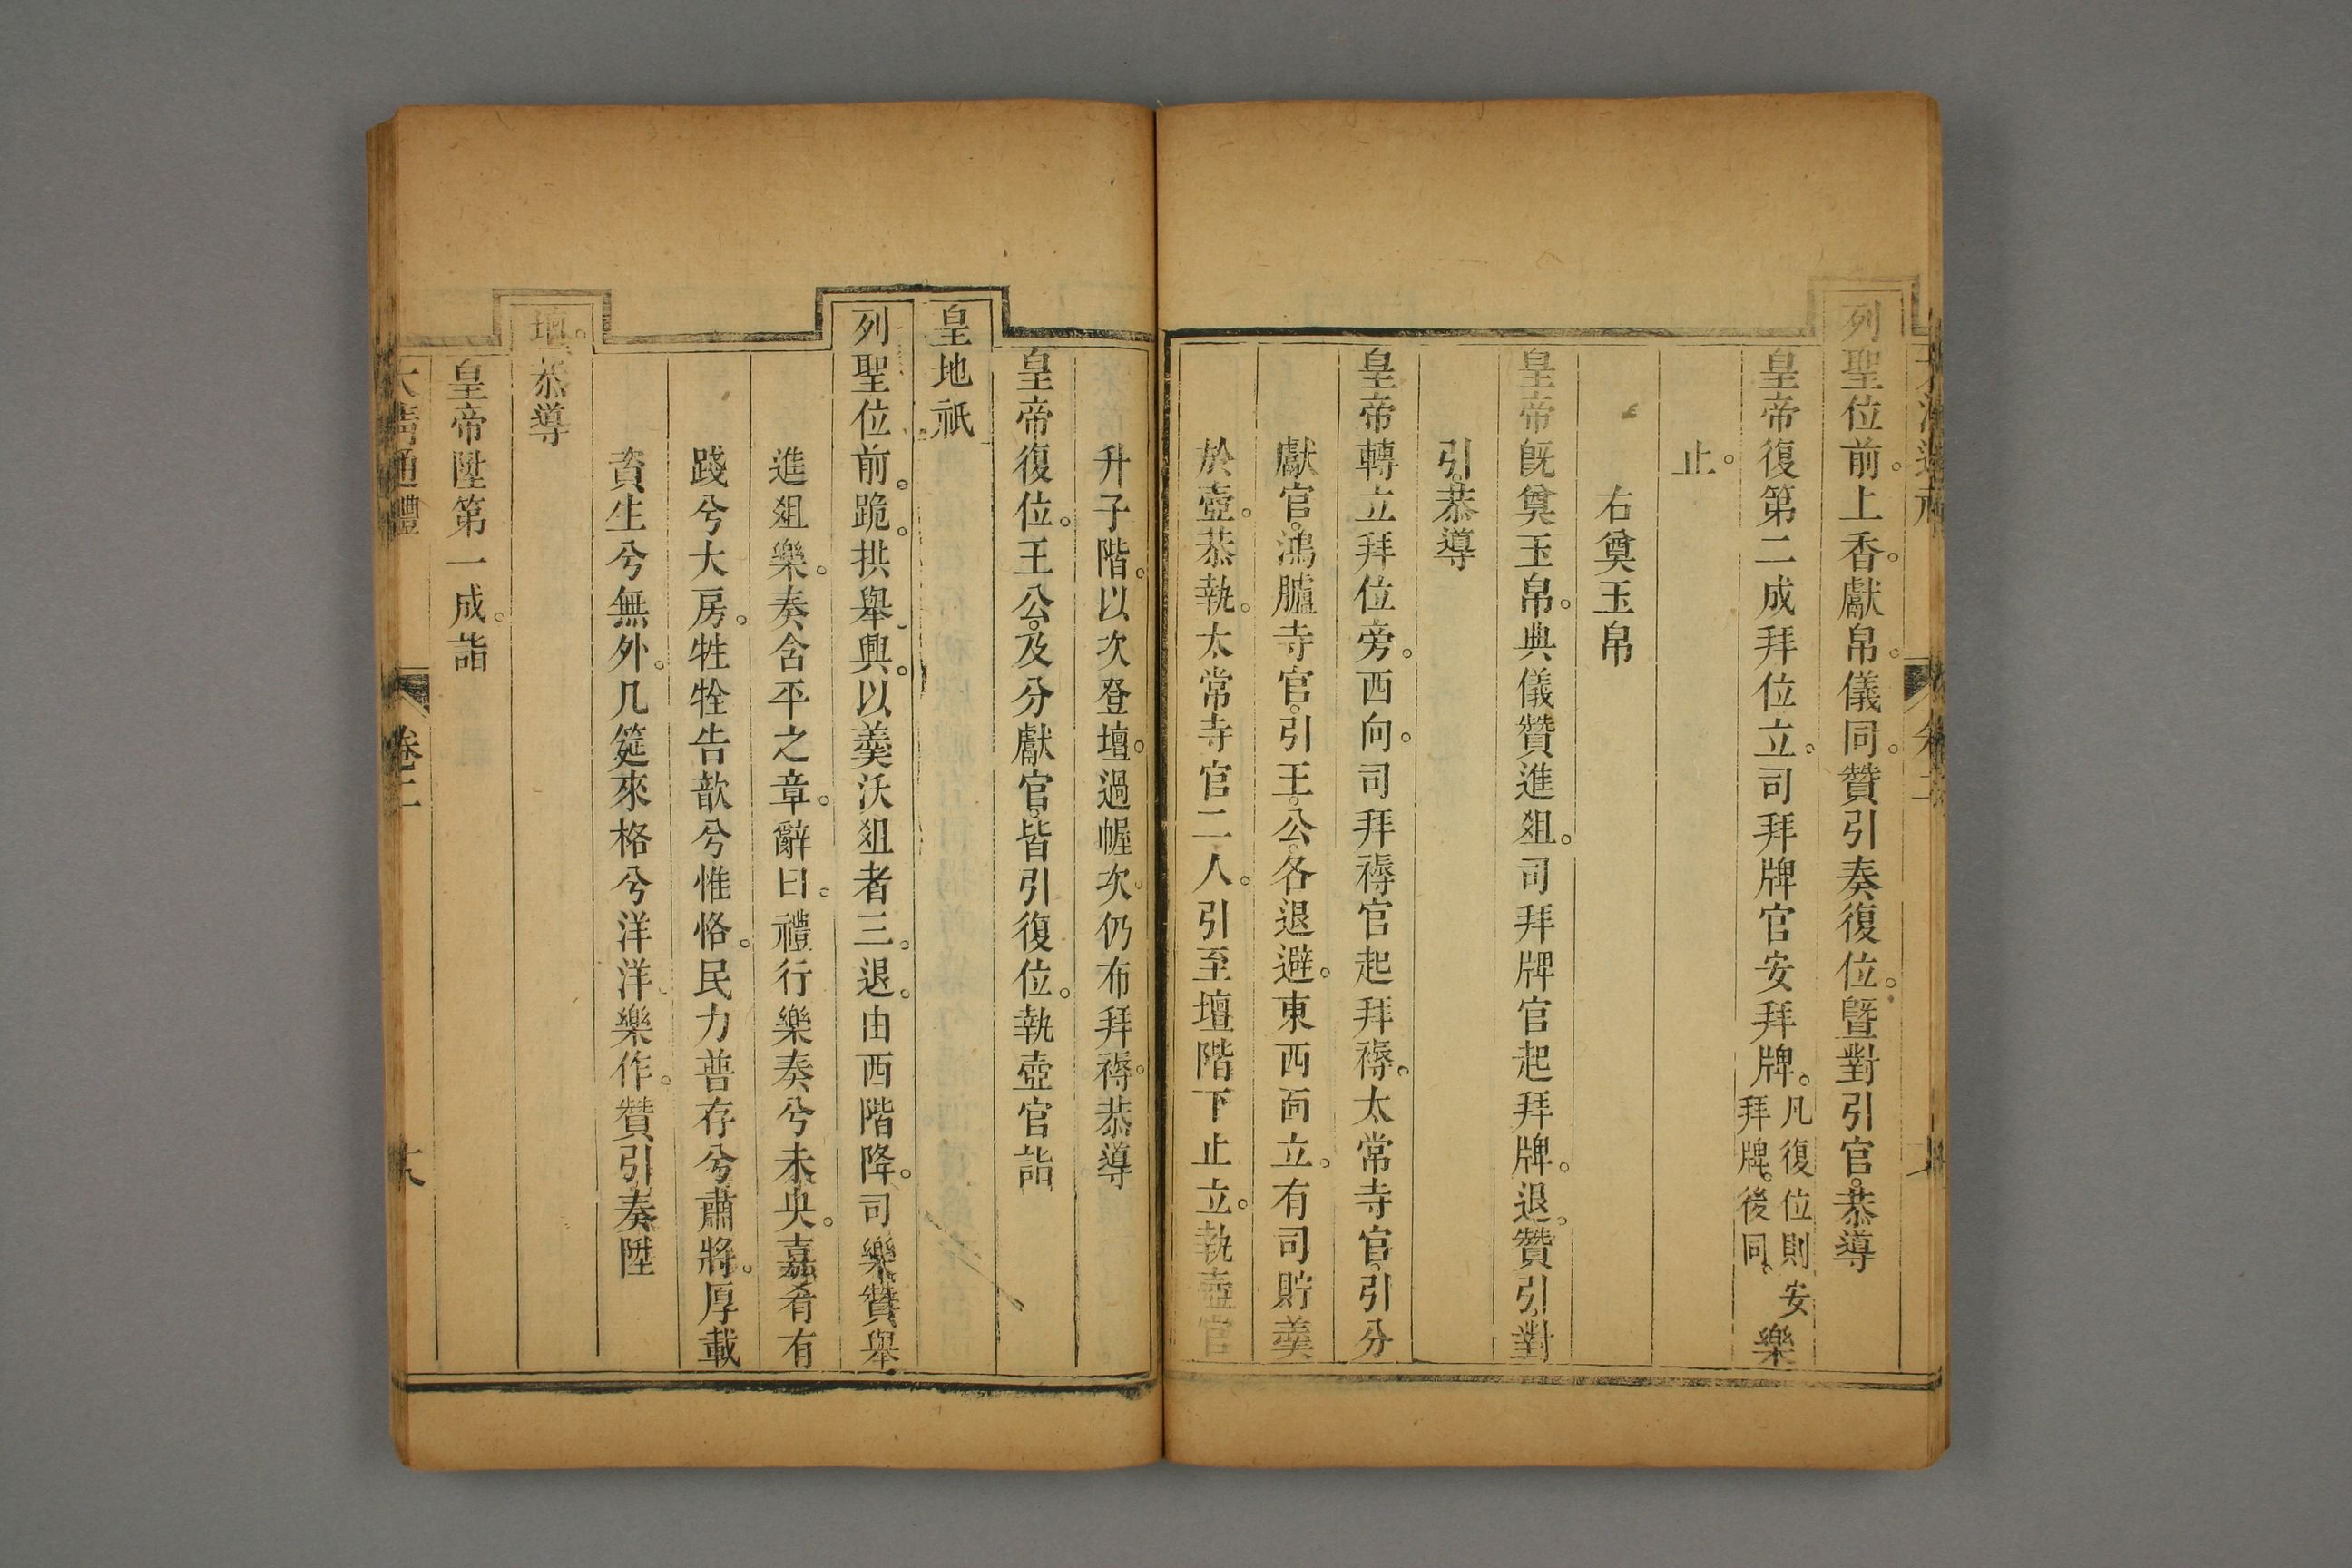 列聖位前。上香。獻帛。儀同。贊引奏復位。曁對引官。恭導
皇帝復第二成拜位立。司拜牌官安拜牌。凡復位則安拜牌。後同。樂
止。
右奠玉帛
皇帝旣奠玉帛。典儀贊進俎。司拜牌官起拜牌。退。贊引對
引。恭導
皇帝轉立拜位旁。西向。司拜褥官起拜褥。太常寺官。引分
獻官。鴻臚寺官。引王。公。各退避。東西面立。有司貯羹
於壺。恭執。太常寺官二人。引至壇階下止立。執壺官
升子階。以次登壇。過幄次。仍布拜褥。恭導
皇帝復位。王公。及分獻官。皆引復位。執壺官詣
皇地祇
列聖位前。跪。拱舉。興。以羹沃俎者三。退。由西階降。司樂贊舉
進俎樂。奏含平之章。辭曰。禮行樂奏兮未央。嘉肴有
踐兮大房。牲牷告歆兮惟恪。民力普存兮肅將。厚載
資生兮無外。几筵來格兮洋洋。樂作。贊引奏陞
壇。恭導
皇帝陞第一成。詣
大淸通禮
卷二